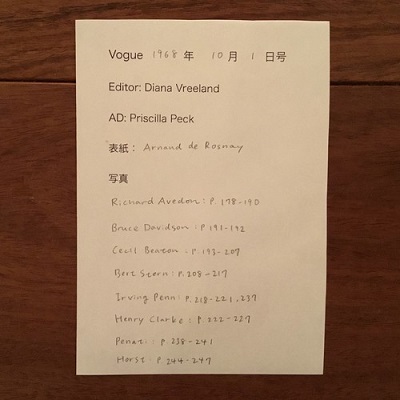 Vogue 1968 年 10 月 1 日号
Editor: Diana Vreeland
AD: Priscilla Peck
表紙： Arnaud de Rosnay
写真
Richard Avedon: P. 178-190
Bruce Davidson: P 191-192
Cecil Beaton: P. 193-207
Bert Stern: P. 208-217
Irving Penn: P. 218-221, 237
Henry Clarke: P 222-227
Penati: P 238-241
Horst: P 244-247